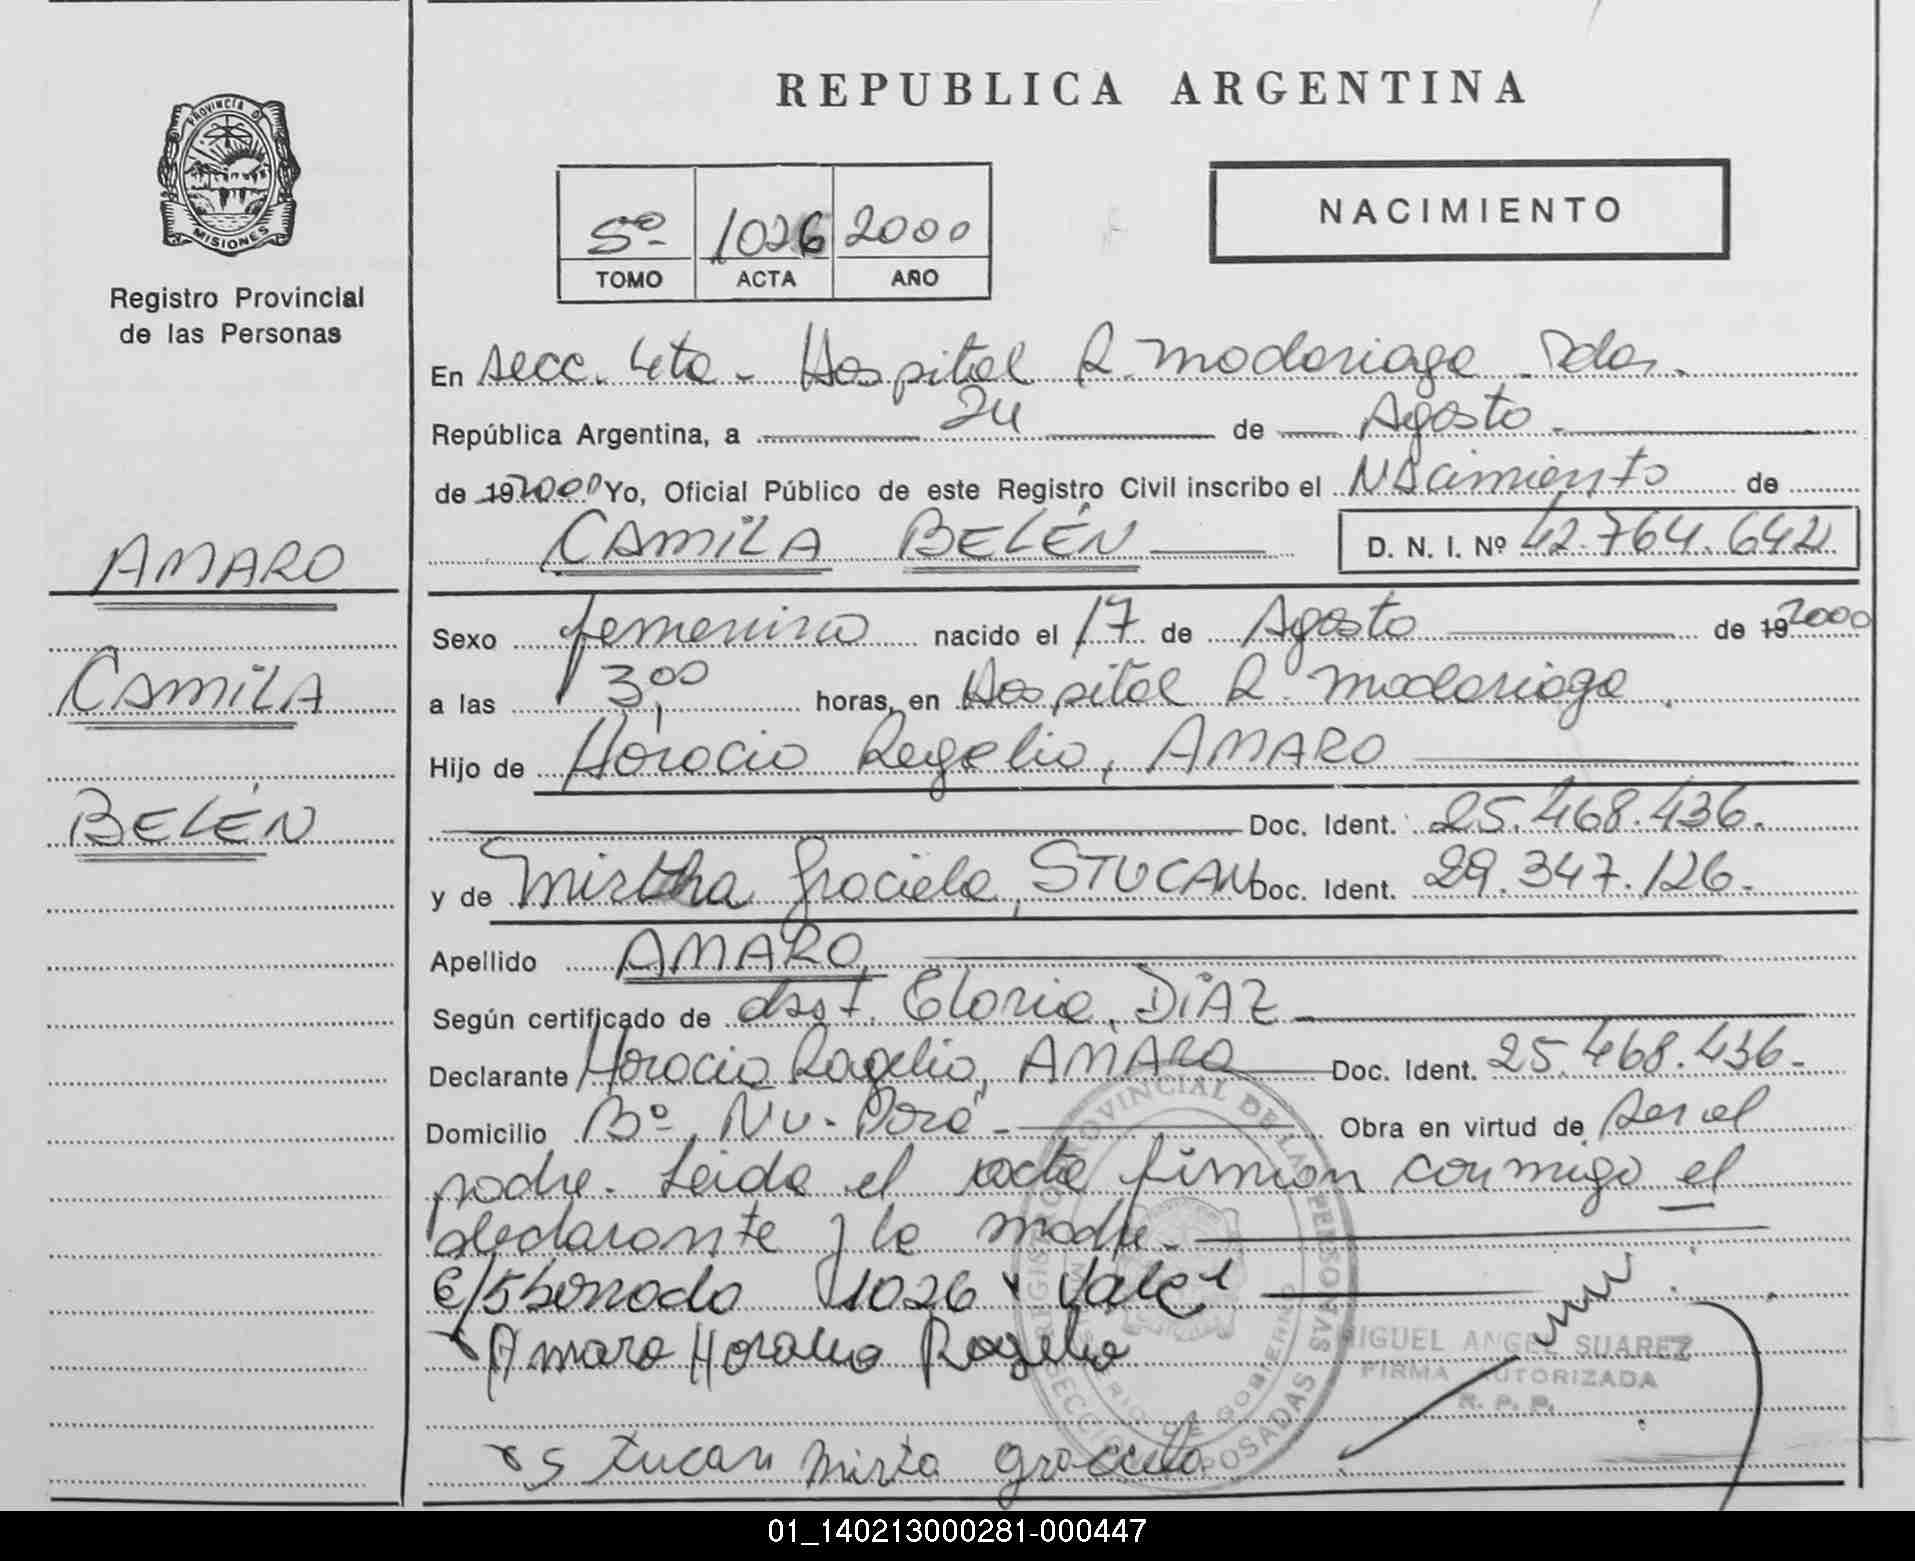 PROVINCIA DE
MISIONES
Registro Provincial
de las Personas
AMARO
CAMILA
BELÉN
REPUBLICA ARGENTINA
5º 1026 2000
TOMO ACTA AÑO
NACIMIENTO
En secc. 4ta - Hospital R. Madariaga - Pdas.
República Argentina, a 24 de Agosto
de 19 2000 Yo, Oficial Público de este Registro Civil inscribo el Nacimiento de
CAMILA BELÉN D. N. I. Nº 42.764.642
Sexo femenino nacido el 17 de Agosto de 19 2000
a las 3,00 horas, en Hospital R. Madariaga.
Hijo de Horacio Rogelio, AMARO
Doc. Ident. 25.468.436.
y de Mirtha Graciela, STUCAN Doc. Ident. 29.347.126.
Apellido AMARO
Según certificado de obst. Gloria, DIAZ
Declarante Horacio Rogelio, AMARO Doc. Ident. 25.468.436.
Domicilio Bº. Ñu-Porá - Obra en virtud de ser el
padre. Leida el acta firman conmigo el
declarante y la madre.
E/5 borrado 1026 Vale
Amaro Horacio Rogelio
Stucan Mirta Graciela
REGISTRO PROVINCIAL DE LAS PERSONAS
MINISTERIO DE GOBIERNO
SECCION POSADAS
MIGUEL ANGEL SUAREZ
FIRMA AUTORIZADA
R. P. P.
01_140213000281-000447